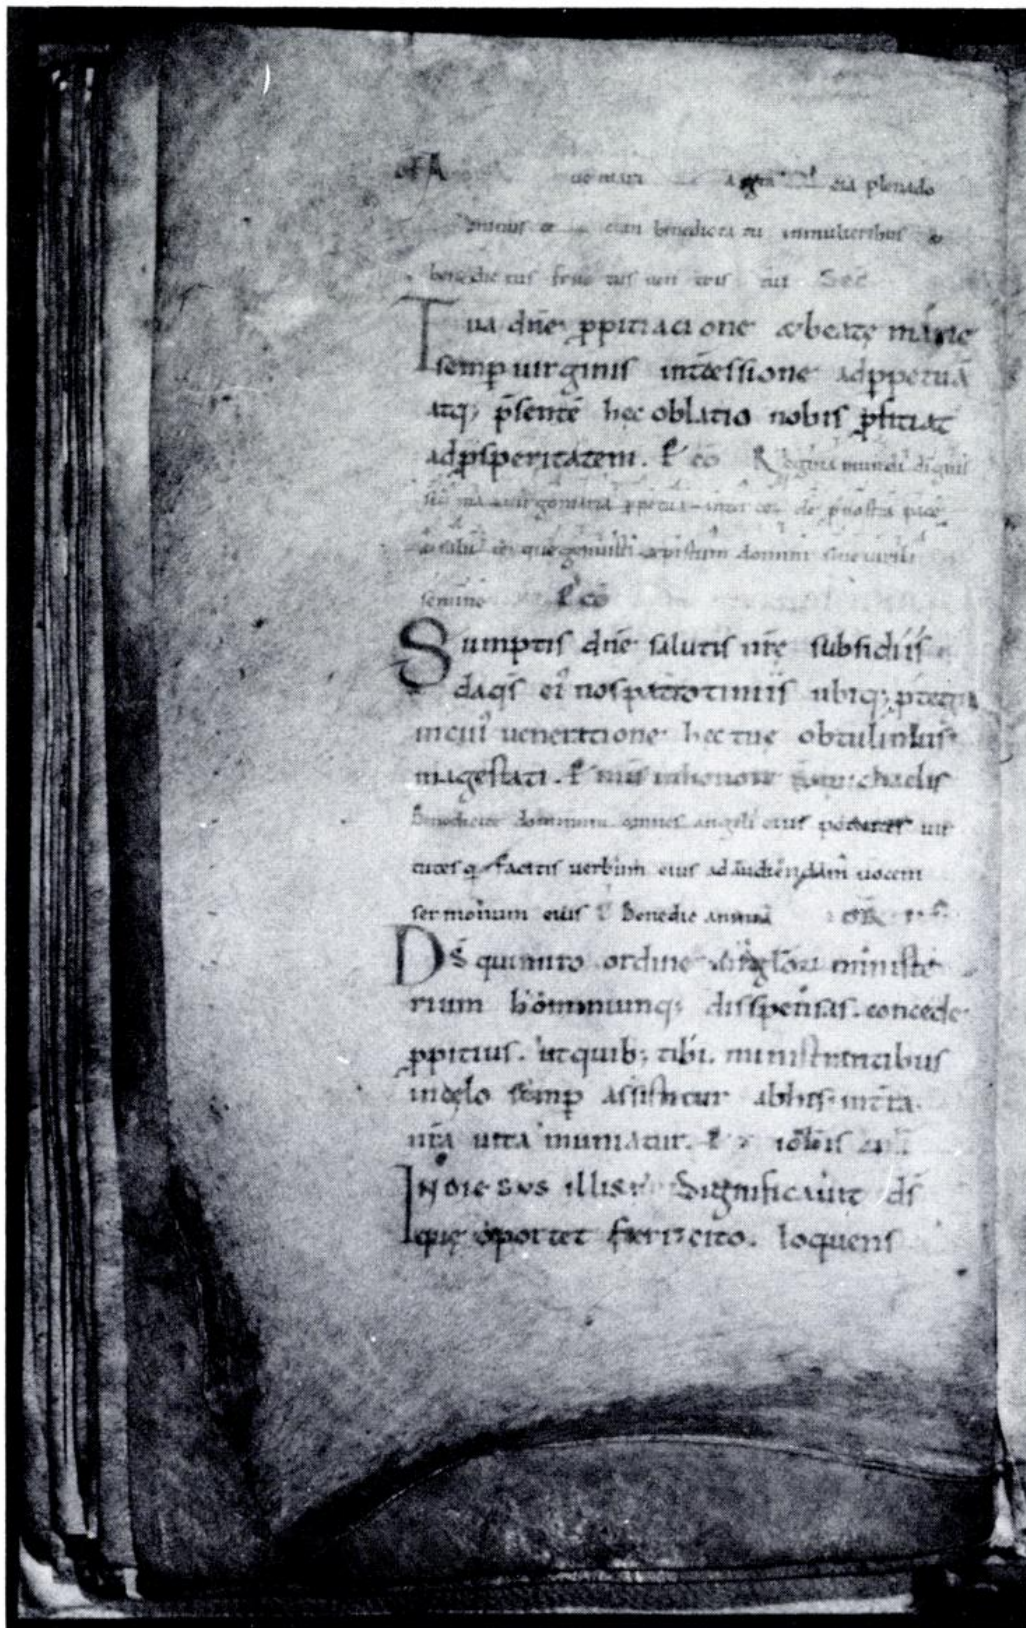 of A ue maria gra plena do
minus benedicta tu inmulieribus
benedictus fructus uentris tui Sec
Tua dn̄e ꝓpitiacione & beatę marię
semꝑ uirginis int̄cessione adꝑpetuā
atq; p̄sentē hec oblatio nobis ꝓficiat
adꝓsperitatem. co Regina mundi dignis
sima uirgo maria ꝑpetua inter ce de ꝓ nostra pace
& salu te que genuisti xp̄istum dominū sine uirili
semine co
Sumptis dn̄e salutis nr̄ę subsidiis
daq̄s ei nos patrociniis ubiq; ꝓtegi
incui ueneratione hec tue obtulimus
magestati. mis inhonore michaelis
Benedicite dominum omnes angeli eius potentes uir
tutes q facitis uerbum eius ad audiendam uocem
sermonum eius Benedic anima
Ds̄ quimiro ordine anglo ministe
rium hominumq; disspensas. concede
ꝓpitius. utquib; tibi. ministrantibus
incęlo semꝑ assistitur abhis int̄ra
nr̄a uita muniatur.
Indiebus illis Significauit ds̄
quę oportet fieri cito. loquens